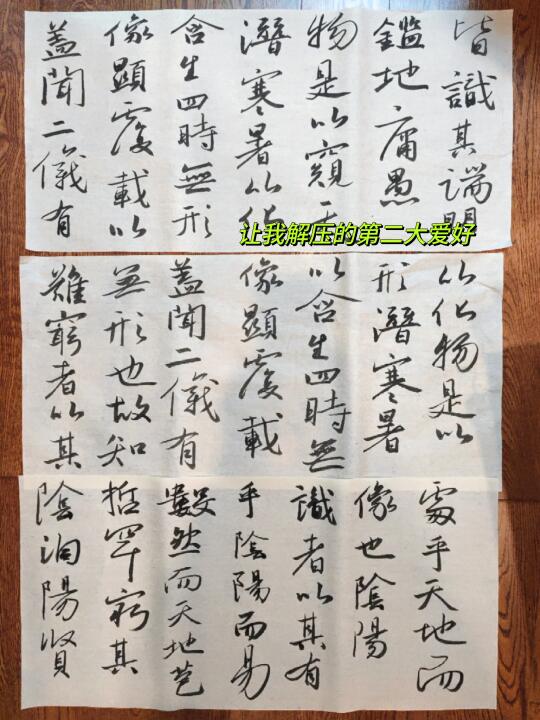 蓋聞二儀有
像顯覆載以
含生四時無形
潛寒暑以化
物是以窺天
鑑地庸愚
皆識其端明
让我解压的第二大爱好
難窮者以其
無形也故知
蓋聞二儀有
像顯覆載
以含生四時無
形潛寒暑
以化物是以
陰洞陽賢
哲罕窮其
數然而天地苞
乎陰陽而易
識者以其有
像也陰陽
處乎天地而